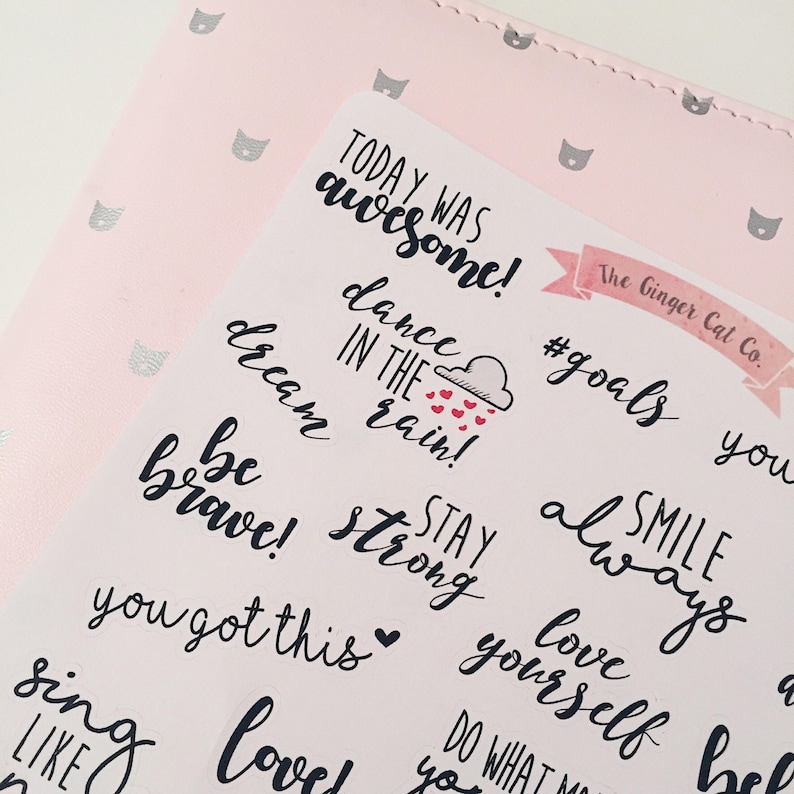 TODAY WAS
awesome!
The Ginger Cat Co.
dance
IN THE
rain!
#goals
dream
you
be
brave!
STAY
strong
SMILE
always
you got this
love
yourself
sing
LIKE
love!
DO WHAT